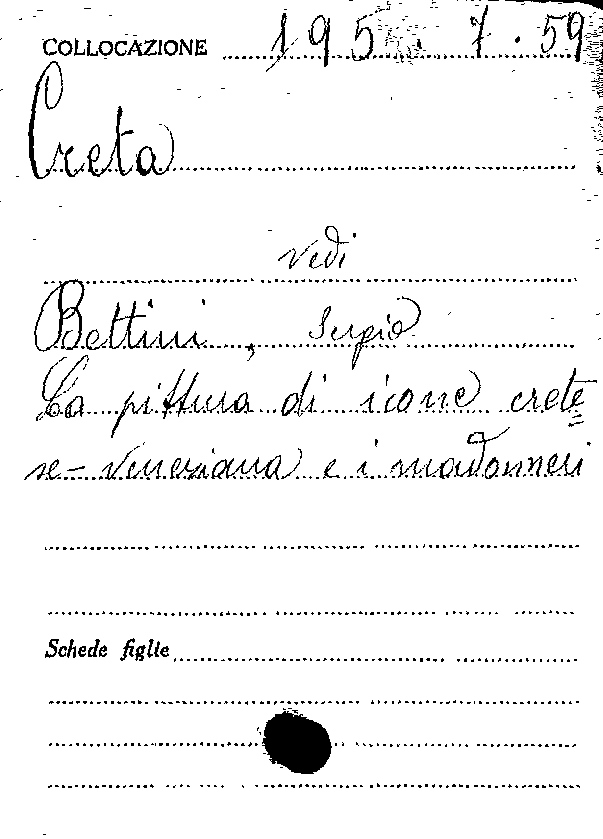 COLLOCAZIONE 195 . 7 . 59
Creta
vedi
Bettini, Sergio
La pittura di icone crete=
se-veneziana e i madonneri
Schede figlie